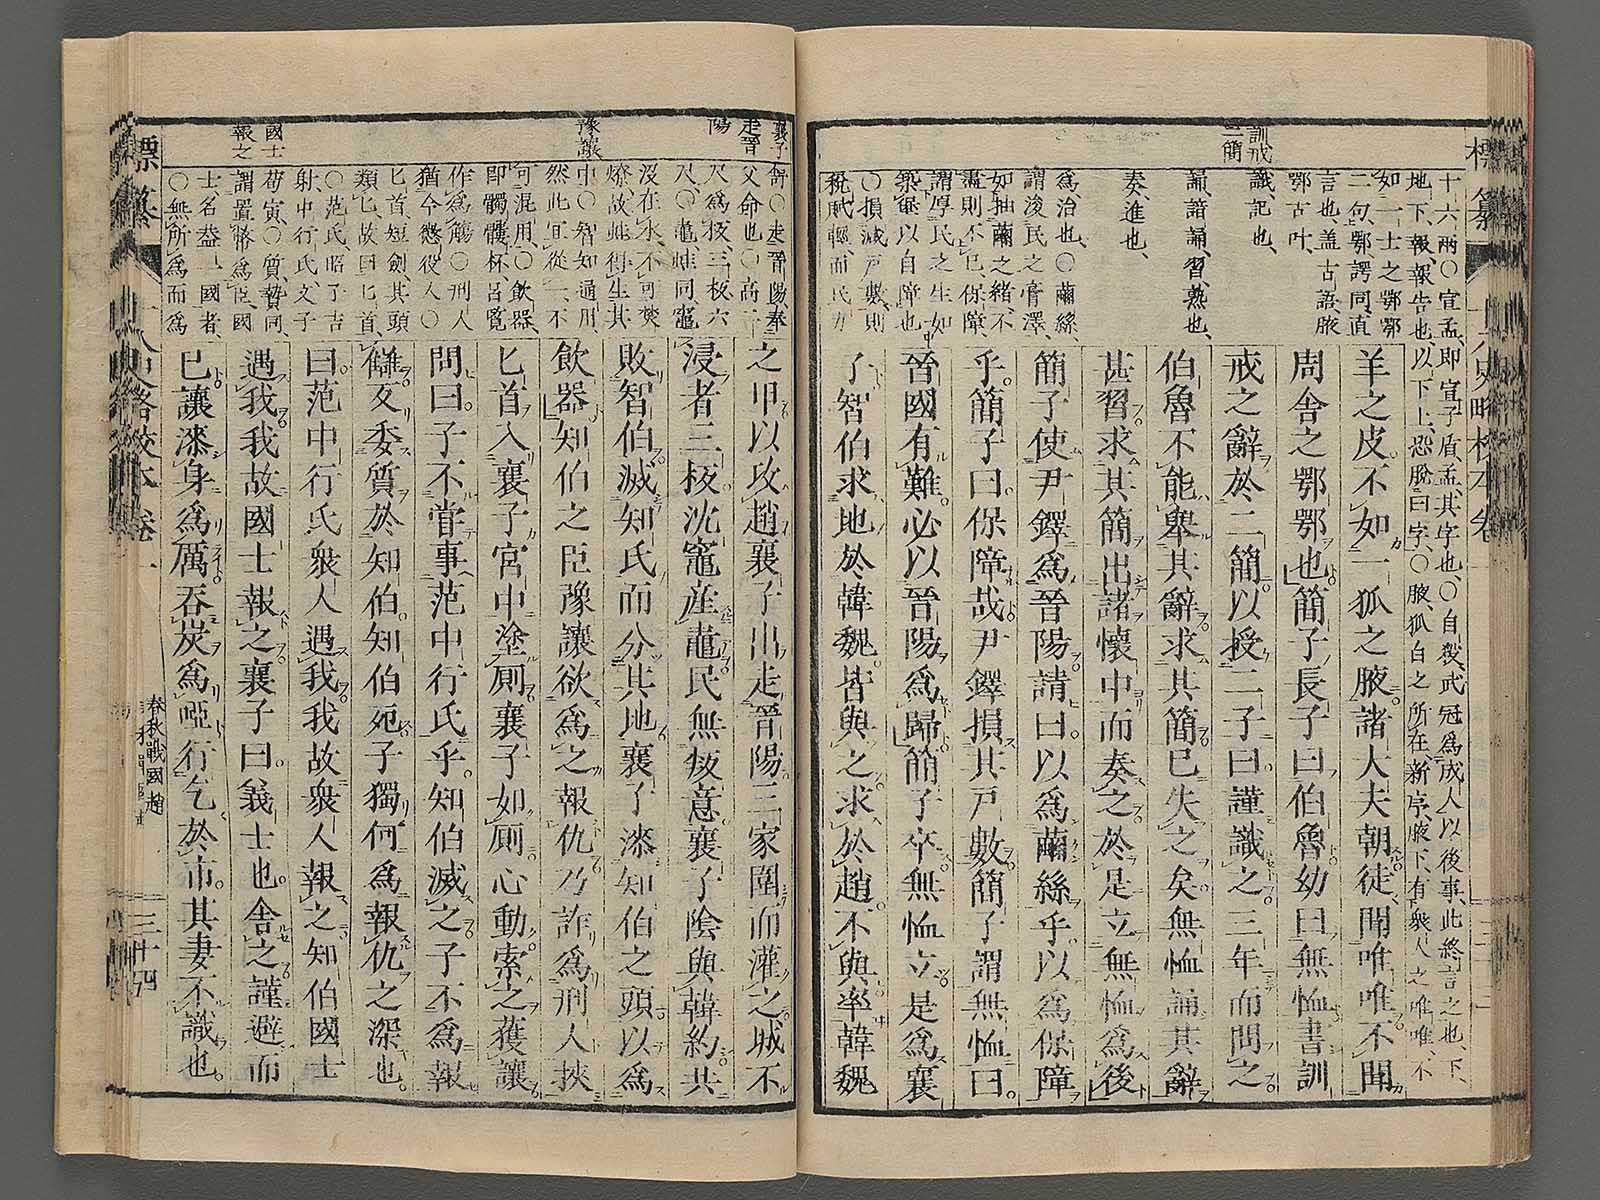 標纂十八史略校本卷一
訓戒
二簡
十六兩〇宣孟、卽宣子盾、孟其字也、〇自殺、武冠爲成人以後事、此終言之也、下、
地下報、報告也、以下上、恐脫曰字、〇腋、狐白之所在、新序、腋下、有衆人之唯唯、不
如一士之鄂鄂
二句、鄂諤同、直
言也、蓋古語、腋
鄂古叶、
識、記也、
誦、諳誦、習、熟也、
奏、進也、
爲、治也、〇繭絲、
謂浚民之膏澤、
如抽繭之緒、不
盡則不已、保障、
謂厚民之生、如
築堡以自障也
〇損減戸數、則
稅賦輕而民力
羊之皮不如一狐之腋諸大夫朝徒聞唯唯不聞
周舍之鄂鄂也簡子長子曰伯魯幼曰無恤書訓
戒之辭於二簡以授二子曰謹識之三年而問之
伯魯不能舉其辭求其簡已失之矣無恤誦其辭
甚習求其簡出諸懷中而奏之於是立無恤爲後
簡子使尹鐸爲晉陽請曰以爲繭絲乎以爲保障
乎簡子曰保障哉尹鐸損其戸數簡子謂無恤曰
晉國有難必以晉陽爲歸簡子卒無恤立是爲襄
子智伯求地於韓魏皆與之求於趙不與率韓魏
襄子
走晉
陽
豫讓
國士
報之
舒〇走晉陽、奉
父命也、〇高二
尺爲板、三板六
尺、〇鼃蛙同、竈
沒在水、不可焚
燎、故蛙得生其
中〇智知通用、
然此宜從一、不
可混用、〇飮器、
卽髑髏杯、呂覽
作爲觴〇刑人
猶今懲役人〇
匕首、短劍、其頭
類匕、故曰匕首
〇范氏、昭子吉
射、中行氏、文子
荀寅、〇質、贄同、
謂置幣爲臣、國
士、名蓋一國者、
〇無所爲而爲
之甲以攻趙襄子出走晉陽三家圍而灌之城不
浸者三板沈竈産鼃民無叛意襄子陰與韓約共
敗智伯滅知氏而分其地襄子漆知伯之頭以爲
飮器知伯之臣豫讓欲爲之報仇乃詐爲刑人挾
匕首入襄子宮中塗厠襄子如厠心動索之獲讓
問曰子不嘗事范中行氏乎知伯滅之子不爲報
讎反委質於知伯知伯死子獨何爲報仇之深也
曰范中行氏衆人遇我我故衆人報之知伯國士
遇我我故國士報之襄子曰義士也舍之謹避而
已讓漆身爲厲呑炭爲啞行乞於市其妻不識也
標纂十八史略校本卷一
春秋戰國 趙
三十四